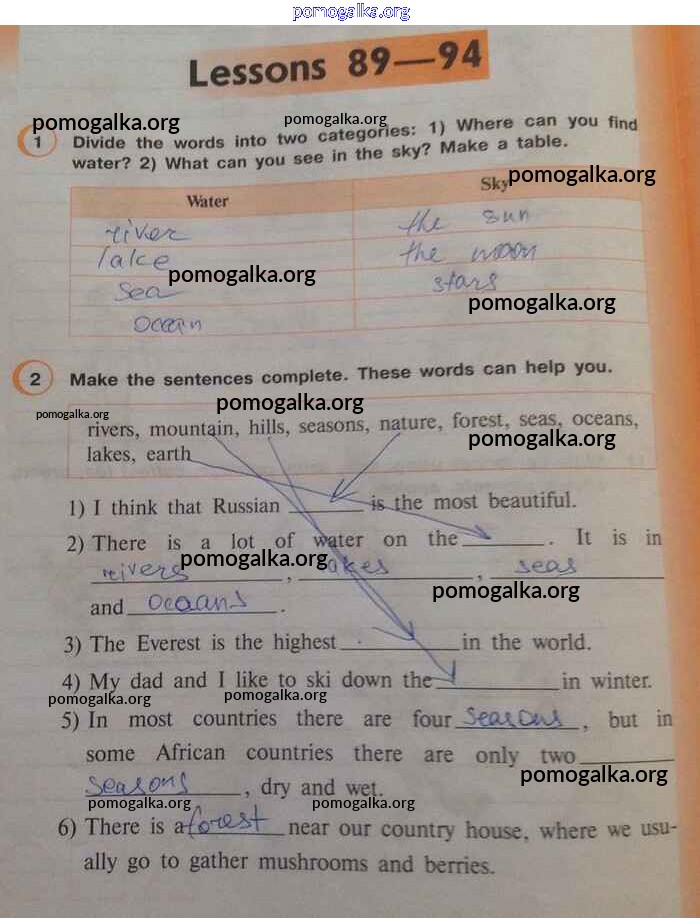 pomogalka.org
Lessons 89—94
pomogalka.org pomogalka.org
1 Divide the words into two categories: 1) Where can you find
water? 2) What can you see in the sky? Make a table.
pomogalka.org
Water Sky
river the sun
lake the moon
pomogalka.org
sea stars
pomogalka.org
ocean
2 Make the sentences complete. These words can help you.
pomogalka.org pomogalka.org
rivers, mountain, hills, seasons, nature, forest, seas, oceans,
pomogalka.org
lakes, earth
1) I think that Russian ______ is the most beautiful.
2) There is a lot of water on the ______. It is in
pomogalka.org
rivers, lakes, seas
pomogalka.org
and oceans.
3) The Everest is the highest ______ in the world.
4) My dad and I like to ski down the ______ in winter.
pomogalka.org pomogalka.org
5) In most countries there are four seasons, but in
some African countries there are only two
pomogalka.org
seasons, dry and wet.
pomogalka.org pomogalka.org
6) There is a forest near our country house, where we usu-
ally go to gather mushrooms and berries.